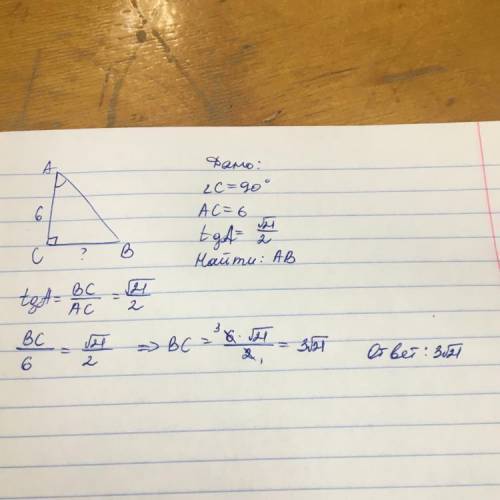 A
6
C
?
B
Дано:
∠C=90°
AC=6
tgA= √21/2
Найти: AB
tgA= BC/AC = √21/2
BC/6 = √21/2 => BC= ³6·√21/2₁ = 3√21
Ответ: 3√21